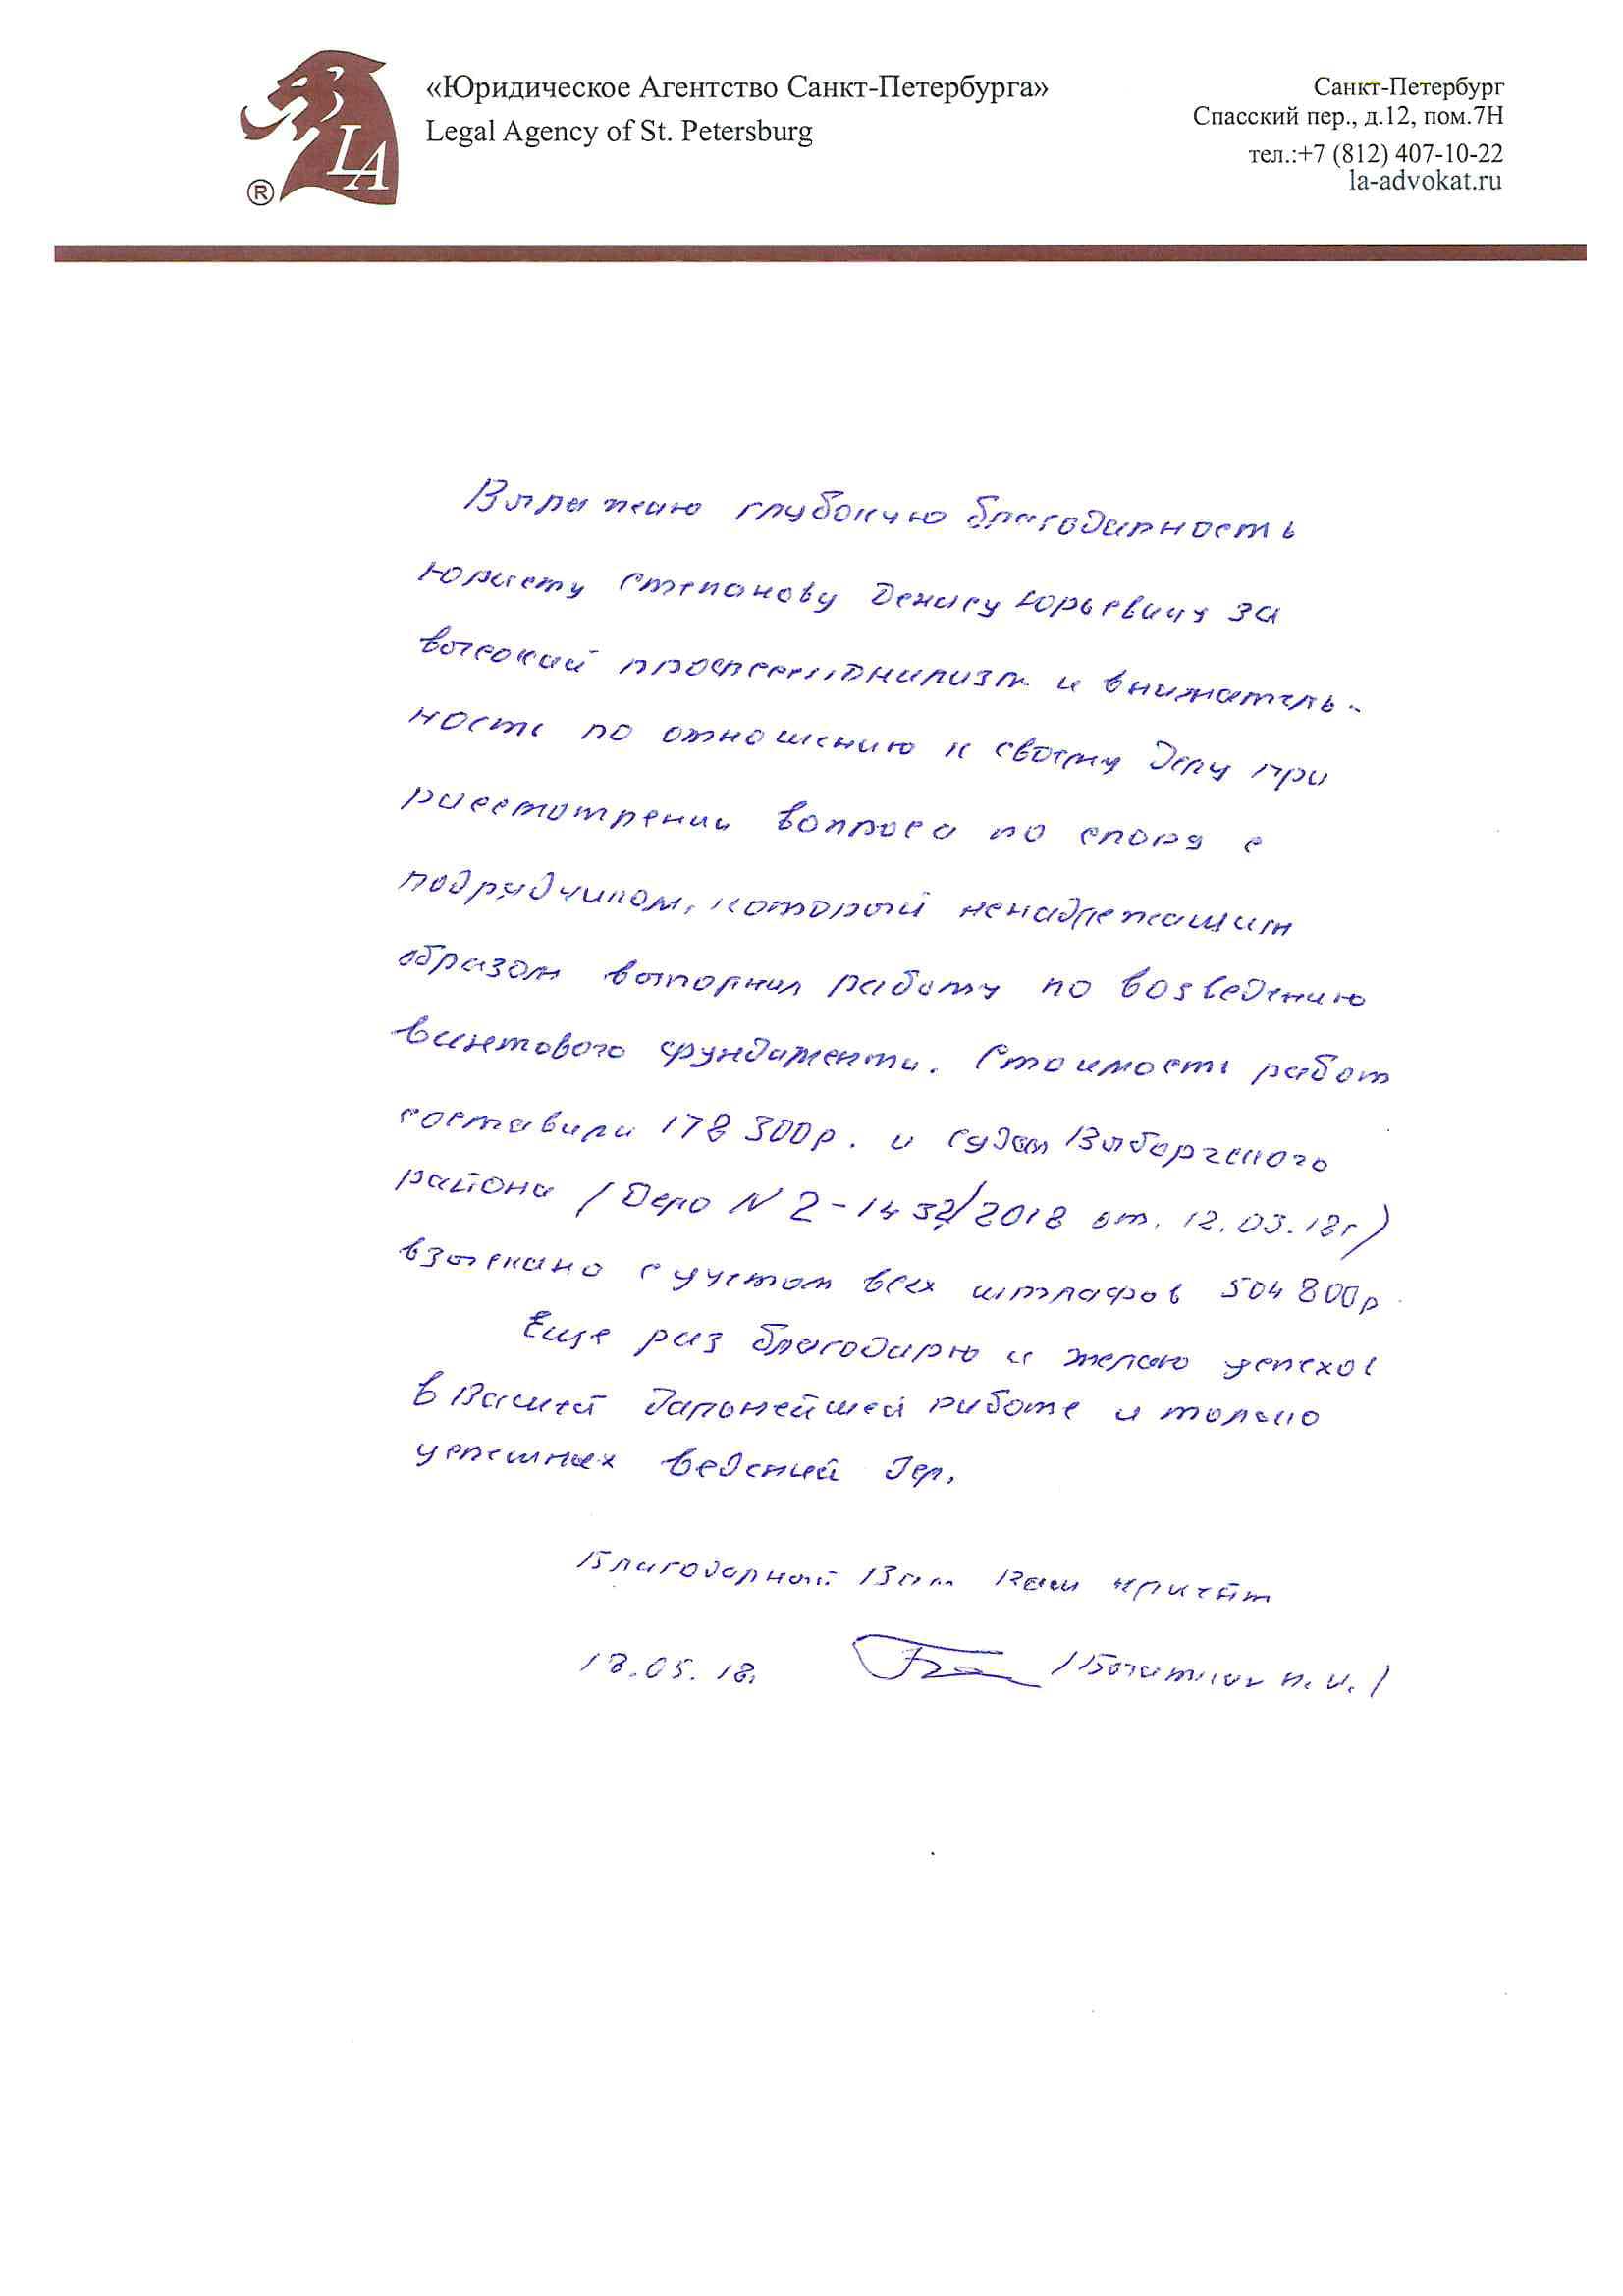 «Юридическое Агентство Санкт-Петербурга»
Legal Agency of St. Petersburg
Санкт-Петербург
Спасский пер., д.12, пом.7Н
тел.:+7 (812) 407-10-22
la-advokat.ru
LA
®
Выражаю глубокую благодарность
юристу Степанову Денису Юрьевичу за
высокий профессионализм и вниматель-
ность по отношению к своему делу при
рассмотрении вопроса по спору с
подрядчиком, который ненадлежащим
образом выполнил работу по возведению
винтового фундамента. Стоимость работ
составила 178 300р. и судом Выборгского
района (Дело N 2-1437/2018 от. 12.03.18г)
взыскано с учетом всех штрафов 504 800р.
Еще раз благодарю и желаю успехов
в Вашей дальнейшей работе и только
успешных ведений дел.
Благодарный Вам Ваш клиент
18.05.18.